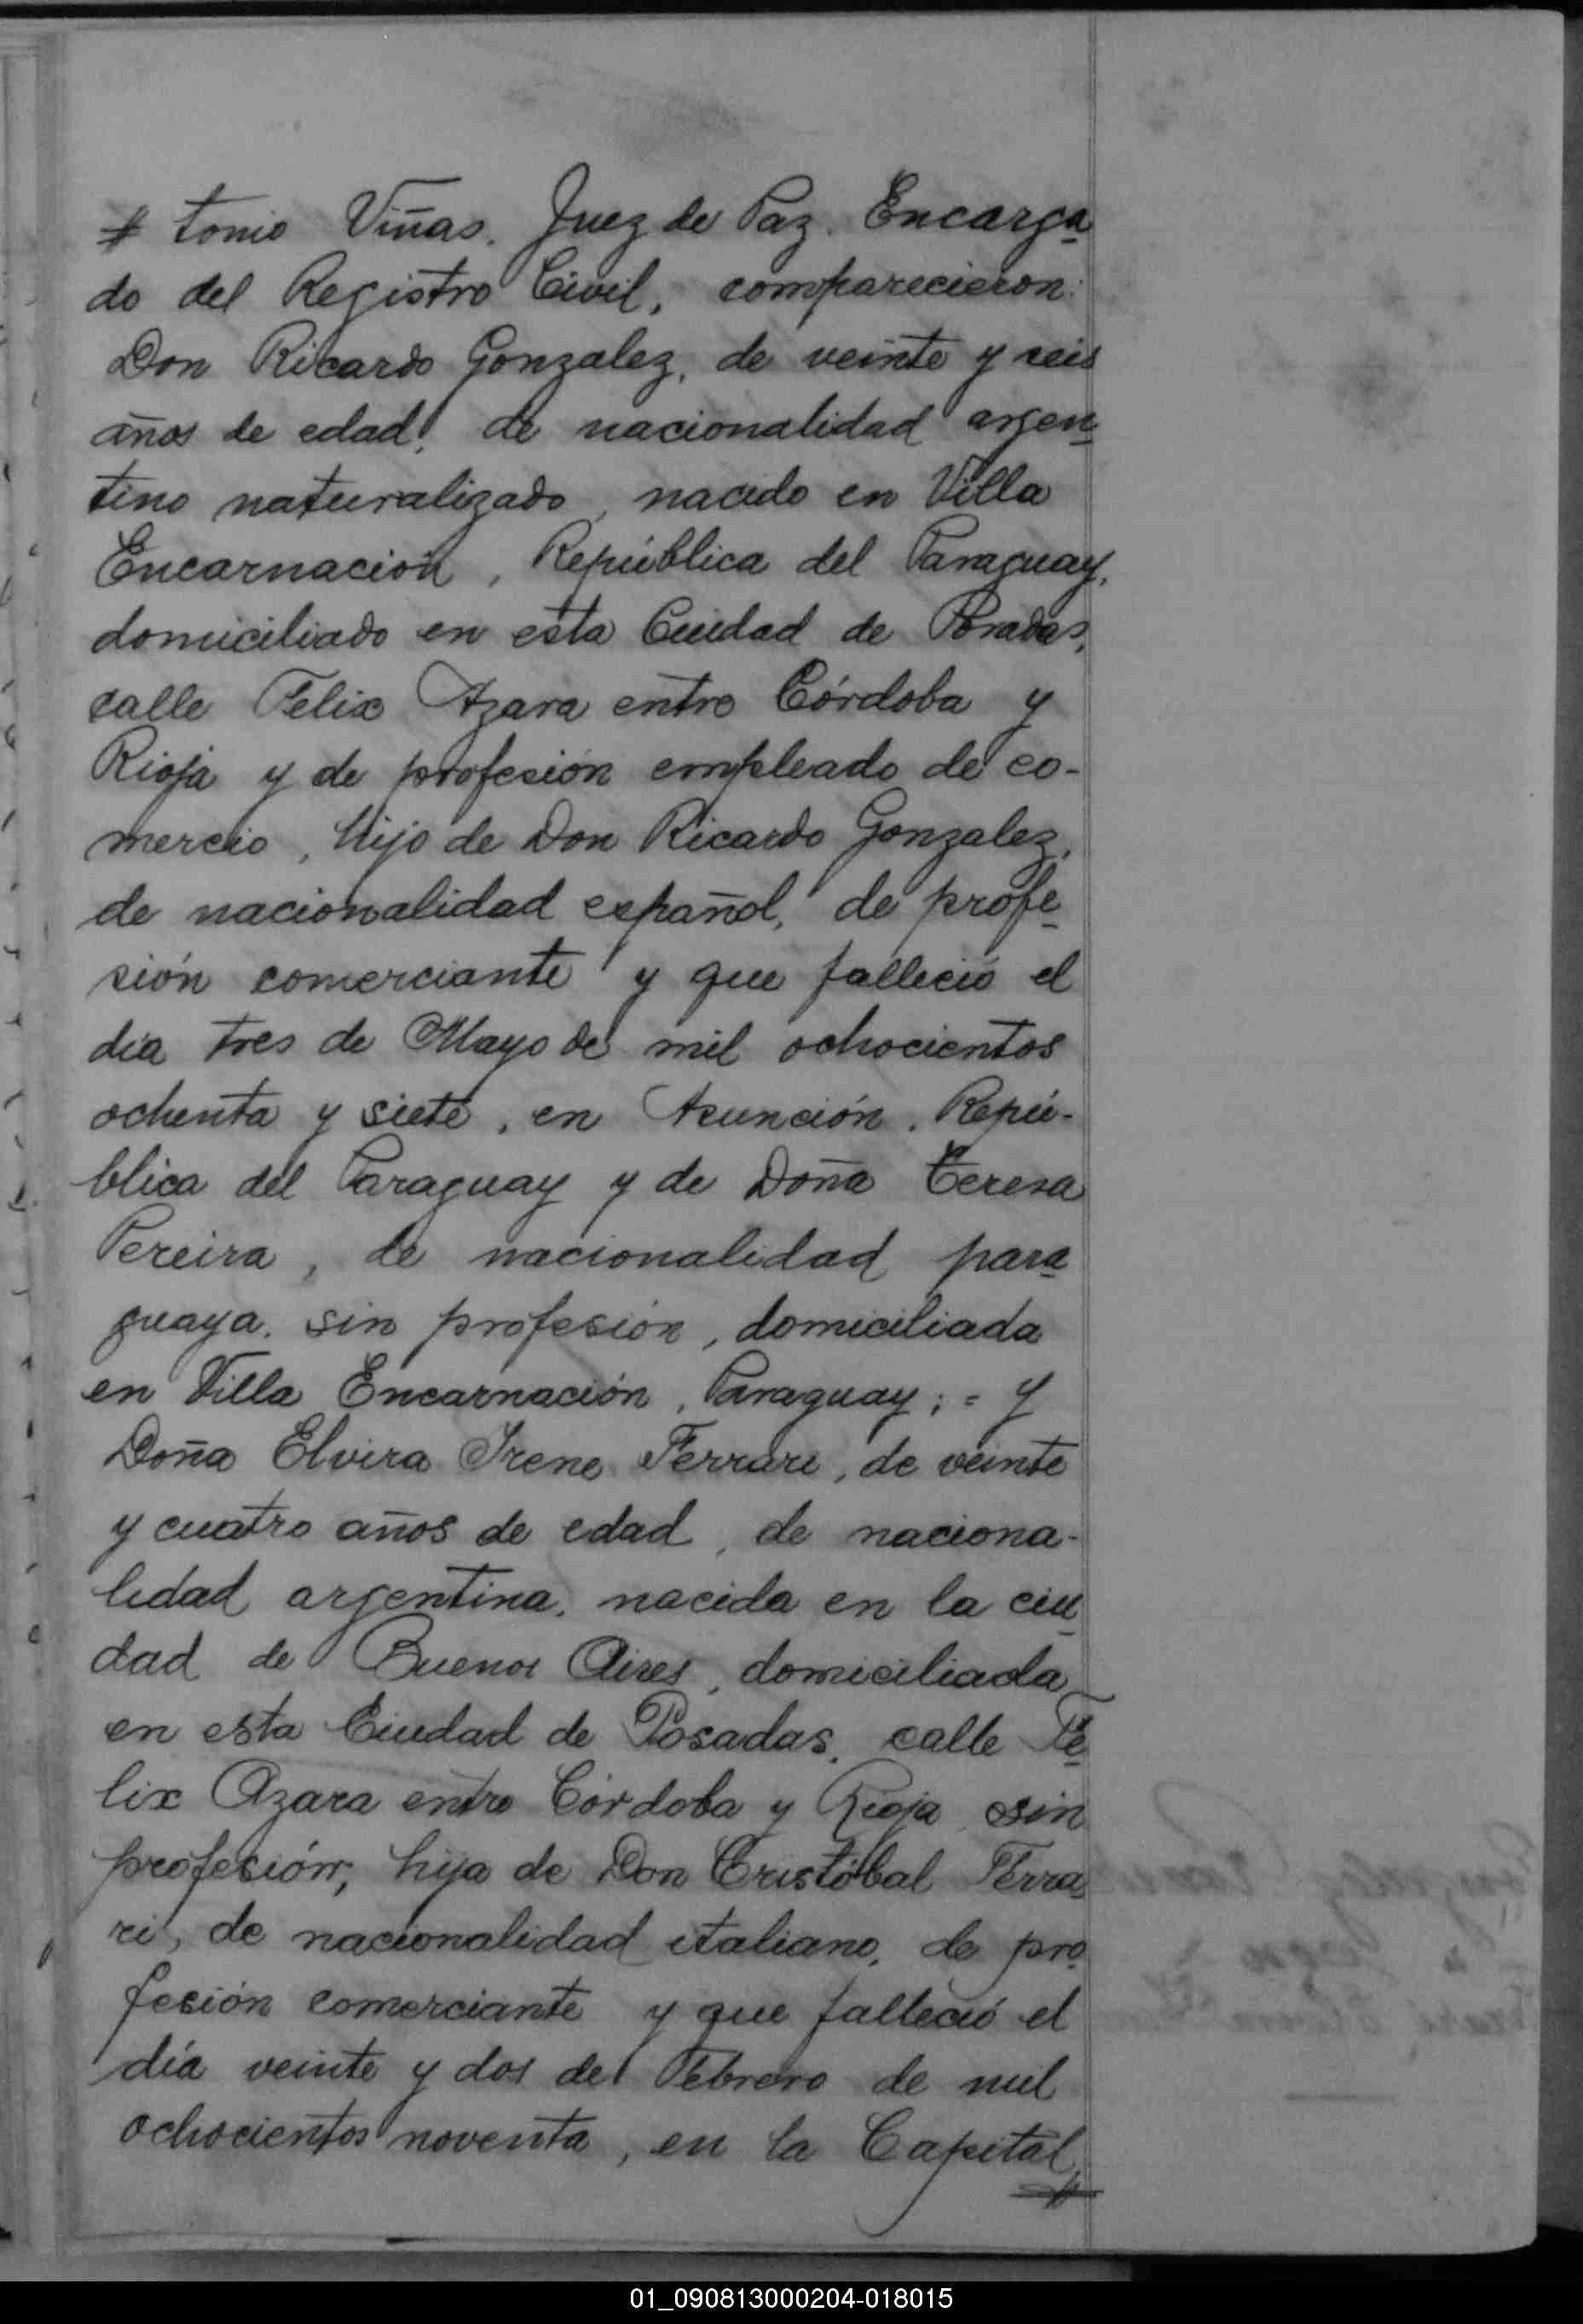 # tonio Viñas, Juez de Paz. Encarga
do del Registro Civil, comparecieron:
Don Ricardo Gonzalez, de veinte y seis
años de edad, de nacionalidad argen
tino naturalizado, nacido en Villa
Encarnación, República del Paraguay,
domiciliado en esta Ciudad de Posadas,
calle Felix Azara entre Córdoba y
Rioja y de profesión empleado de co-
mercio, hijo de Don Ricardo Gonzalez,
de nacionalidad español, de profe
sión comerciante y que falleció el
día tres de Mayo de mil ochocientos
ochenta y siete, en Asunción, Repú-
blica del Paraguay y de Doña Teresa
Pereira, de nacionalidad para
guaya, sin profesión, domiciliada
en Villa Encarnación, Paraguay; = y
Doña Elvira Irene Ferrari, de veinte
y cuatro años de edad, de naciona-
lidad argentina, nacida en la ciu
dad de Buenos Aires, domiciliada
en esta Ciudad de Posadas, calle Fe
lix Azara entre Córdoba y Rioja sin
profesión, hija de Don Cristóbal Ferra
ri, de nacionalidad italiano, de pro
fesión comerciante y que falleció el
día veinte y dos de Febrero de mil
ochocientos noventa, en la Capital
#
01_090813000204-018015